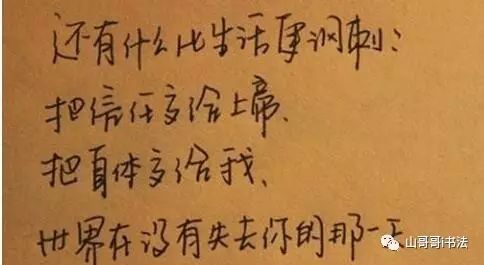 还有什么比生活更讽刺:
把信任交给上帝、
把身体交给我、
世界在没有失去你的那一
山哥哥i书法